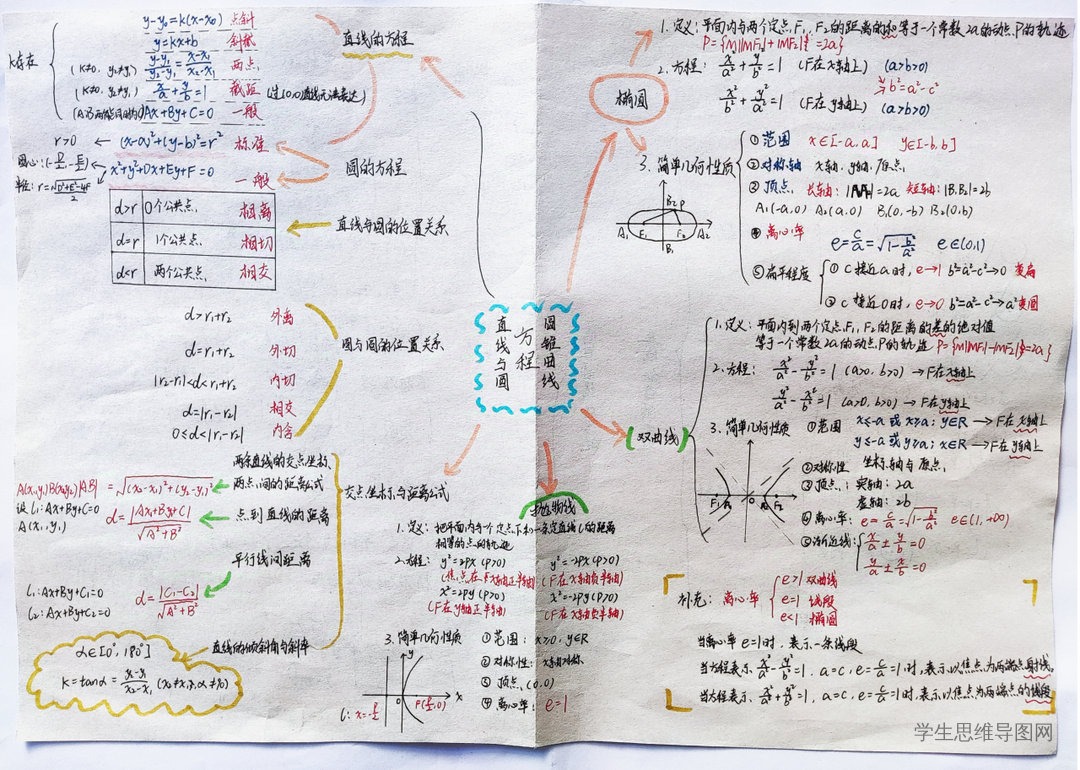 y-y₀=k(x-x₀) 点斜
y=kx+b 斜截
k存在
(k≠0, y₂≠y₁) (y-y₁)/(y₂-y₁)=(x-x₁)/(x₂-x₁) 两点
x/a+y/b=1 截距
Ax+By+C=0 一般
直线的方程
r>0 ← (x-a)²+(y-b)²=r² 标准
圆心:(-D/2,-E/2)
x²+y²+Dx+Ey+F=0 一般
半径: r=√(D²+E²-4F)/2
圆的方程
d>r 0个公共点 相离
d=r 1个公共点 相切
d<r 两个公共点 相交
直线与圆的位置关系
d>r₁+r₂ 外离
d=r₁+r₂ 外切
|r₂-r₁|<d<r₁+r₂ 内切
d=|r₁-r₂| 相交
0≤d<|r₁-r₂| 内含
圆与圆的位置关系
两条直线的交点坐标
A(x₁,y₁)B(x₂y₂)|AB| =√((x₂-x₁)²+(y₂-y₁)²) 两点间的距离公式
设l:Ax+By+C=0
A(x₁,y₁)
d=|Ax₁+By₁+C|/√(A²+B²) 点到直线的距离
平行线间距离
l₁:Ax+By+C₁=0
l₂:Ax+By+C₂=0
d=|C₁-C₂|/√(A²+B²)
交点坐标与距离公式
α∈[0°,180°]
直线的倾斜角与斜率
k=tanα=(y₂-y₁)/(x₂-x₁)
直线与圆
方程
圆锥曲线
椭圆
1.定义:平面内与两个定点F₁,F₂的距离的和等于一个常数2a的动点P的轨迹
P={M||MF₁|+|MF₂|=2a}
2.方程: x²/a²+y²/b²=1 (F在x轴上) (a>b>0)
b²=a²-c²
x²/b²+y²/a²=1 (F在y轴上) (a>b>0)
3.简单几何性质
①范围 x∈[-a,a] y∈[-b,b]
②对称轴 x轴,y轴,原点
③顶点 长轴: =2a 短轴:|B₁B₂|=2b
A₁(-a,0) A₂(a,0) B₁(0,-b) B₂(0,b)
④离心率
e=c/a=√(1-b²/a²) e∈(0,1)
⑤扁平程度
①c接近a时,e→1 b²=a²-c²→0 变扁
②c接近0时,e→0 b²=a²-c²→a² 变圆
B₂ P
A₁ F₁ F₂ A₂
B₁
双曲线
1.定义:平面内到两个定点F₁,F₂的距离的差的绝对值
等于一个常数2a的动点P的轨迹 P={M||MF₁|-|MF₂|=2a}
2.方程: x²/a²-y²/b²=1 (a>0,b>0) → F在x轴上
y²/a²-x²/b²=1 (a>0,b>0) → F在y轴上
3.简单几何性质 ①范围 x≤-a 或 x≥a; y∈R → F在x轴上
y≤-a 或 y≥a; x∈R → F在y轴上
②对称性 坐标轴与原点
③顶点: 实轴: 2a
虚轴: 2b
④离心率: e=c/a=√(1-b²/a²) e∈(1,+∞)
⑤渐近线: x/a±y/b=0
y/a±x/b=0
补充: 离心率
e>1 双曲线
e=1 线段
e<1 椭圆
当离心率e=1时,表示一条线段
当方程表示x²/a²-y²/b²=1, a=c, e=c/a=1时,表示以焦点为两端点射线
当方程表示x²/a²+y²/b²=1, a=c, e=c/a=1时,表示以焦点为两端点的线段
抛物线
1.定义:把平面内与一个定点F和一条定直线l的距离
相等的点的轨迹
2.方程: y²=2px(p>0) y²=-2px(p>0)
(焦点在F x轴正半轴) (F在x轴负半轴)
x²=2py(p>0) x²=-2py(p>0)
(F在y轴正半轴) (F在x轴负半轴)
3.简单几何性质 ①范围: x≥0, y∈R
②对称性: x轴对称
③顶点(0,0)
④离心率: e=1
y
x
0 F(p/2,0)
l: x=-p/2
学生思维导图网